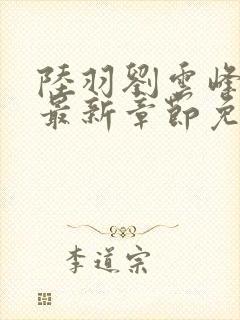 陸羽劉雲峰
最新章節免
李道宗